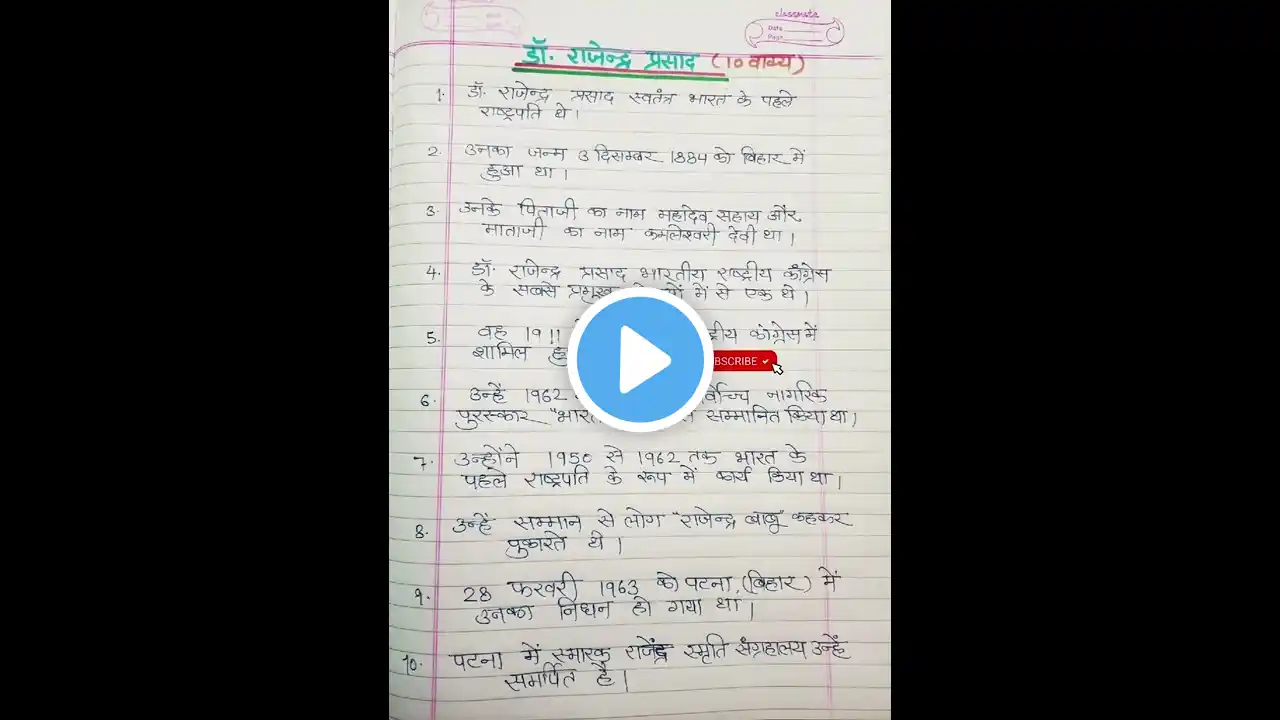 classmate
Date
Page
डॉ. राजेन्द्र प्रसाद (10 वाक्य)
1. डॉ. राजेन्द्र प्रसाद स्वतंत्र भारत के पहले
राष्ट्रपति थे।
2. उनका जन्म 3 दिसम्बर 1884 को बिहार में
हुआ था।
3. उनके पिताजी का नाम महादेव सहाय और
माताजी का नाम कमलेश्वरी देवी था।
4. डॉ. राजेन्द्र प्रसाद भारतीय राष्ट्रीय काँग्रेस
के सबसे प्रमुख में से एक थे।
5. वह 1911 काँग्रेस में
शामिल
SUBSCRIBE
6. उन्हें 1962 नागरिक
पुरस्कार सम्मानित किया था।
7. उन्होंने 1950 से 1962 तक भारत के
पहले राष्ट्रपति के रूप में कार्य किया था।
8. उन्हें सम्मान से लोग "राजेन्द्र बाबू" कहकर
पुकारते थे।
9. 28 फरवरी 1963 को पटना, (बिहार) में
उनका निधन हो गया था।
10. पटना में स्मारक राजेंद्र स्मृति संग्रहालय उन्हें
समर्पित है।